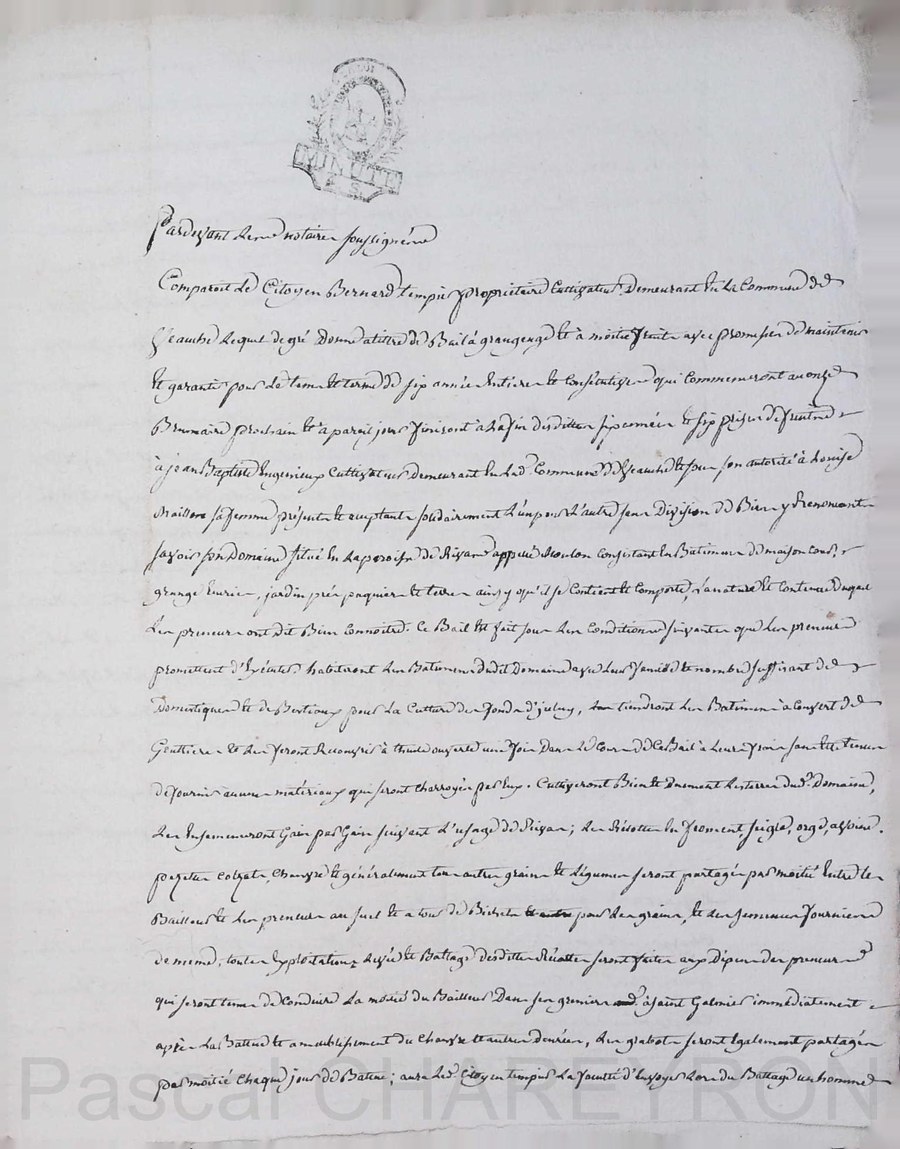 MINUTE
Pardevant les notaires soussignés
Comparoit le Citoyen Bernard Tempié propriétaire Cultivateur, Demeurant en la Commune de
Veauche lequel de gré Donne a titre de Bail à grangeage et à moitié fruits avec promesse de maintenir
et garantir pour le tems et terme de six années Entieres et Consécutives qui Commenceront au onze
Brumaire prochain et à pareil jour finiront a la fin desdittes six années et six prises de fruits
à jean Baptiste Engenieux Cultivateur Demeurant en lad. Commune de Veauche et sous son autorité à Louise
sa femme présents et acceptants solidairement l'un pour l'autre sans Division de Bien y Renonçant
savoir son Domaine situé en la paroisse de appellé Consistant en Batiments de maison cour,
grange Ecurie, jardin prés paquiers et terres ainsy qu'il se Contient et Comporte, sa nature et Contenue Duquel
les preneurs ont dit Bien Connoitre. Ce Bail est fait sous les Conditions suivantes que les preneurs
promettent d'Exécuter. habiteront les Batiments dudit Domaine avec Leur famille et nombre suffisant de
Domestiques et de Bestiaux pour La Culture des fonds d'iceluy, tiendront les Batiments à couvert de
Gouttieres et les feront Recouvrir à thuile ouverte une fois Dans le cours de Ce Bail à Leurs frais sans etre tenus
de fournir aucuns matériaux qui seront Charroyés par Eux. Cultiveront Bien et Duement les terres dud. Domaine,
Les Ensemenceront Gain par Gain suivant l'usage de ; les Récoltes en froment, seigle, orge, avoine,
pezettes Colzat, Chanvre et généralement tous autres grains et Légumes seront partagés par moitié Entre le
Bailleur et les preneurs au sol et a tour de Bichets pour les grains, et les semences fournies
de meme, toutes Exploitations, Levée et Battage desdittes Récoltes seront faites aux Dépens des preneurs
qui seront tenus de Conduire La moitié du Bailleur Dans ses greniers à saint Galmier immédiatement
après La Battue et ameublissement du Chanvre et autres denrées, Les grabots seront Egalement partagés
par moitié Chaque jour de Battue ; aura Led. Citoyen tempié La faculté d'Envoyer Lors du Battage un homme
Pascal CHAREYRON